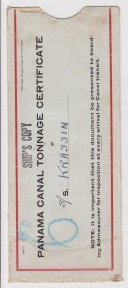 SHIP'S COPY
PANAMA CANAL TONNAGE CERTIFICATE
S/s. KRASSIN
NOTE: It is important that this document be presented to board-
ing Admeasurer for inspection at every arrival for Canal transit.